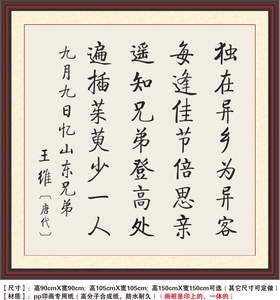 独在异乡为异客
每逢佳节倍思亲
遥知兄弟登高处
遍插茱萸少一人
九月九日忆山东兄弟
王维〔唐代〕
【尺寸】：高90cmX宽90cm；高105cmX宽105cm；高150cmX宽150cm可选（其它尺寸可定做）
【材质】：pp印画专用纸（高分子合成纸，防水耐久）（画框是印上的，一体的）